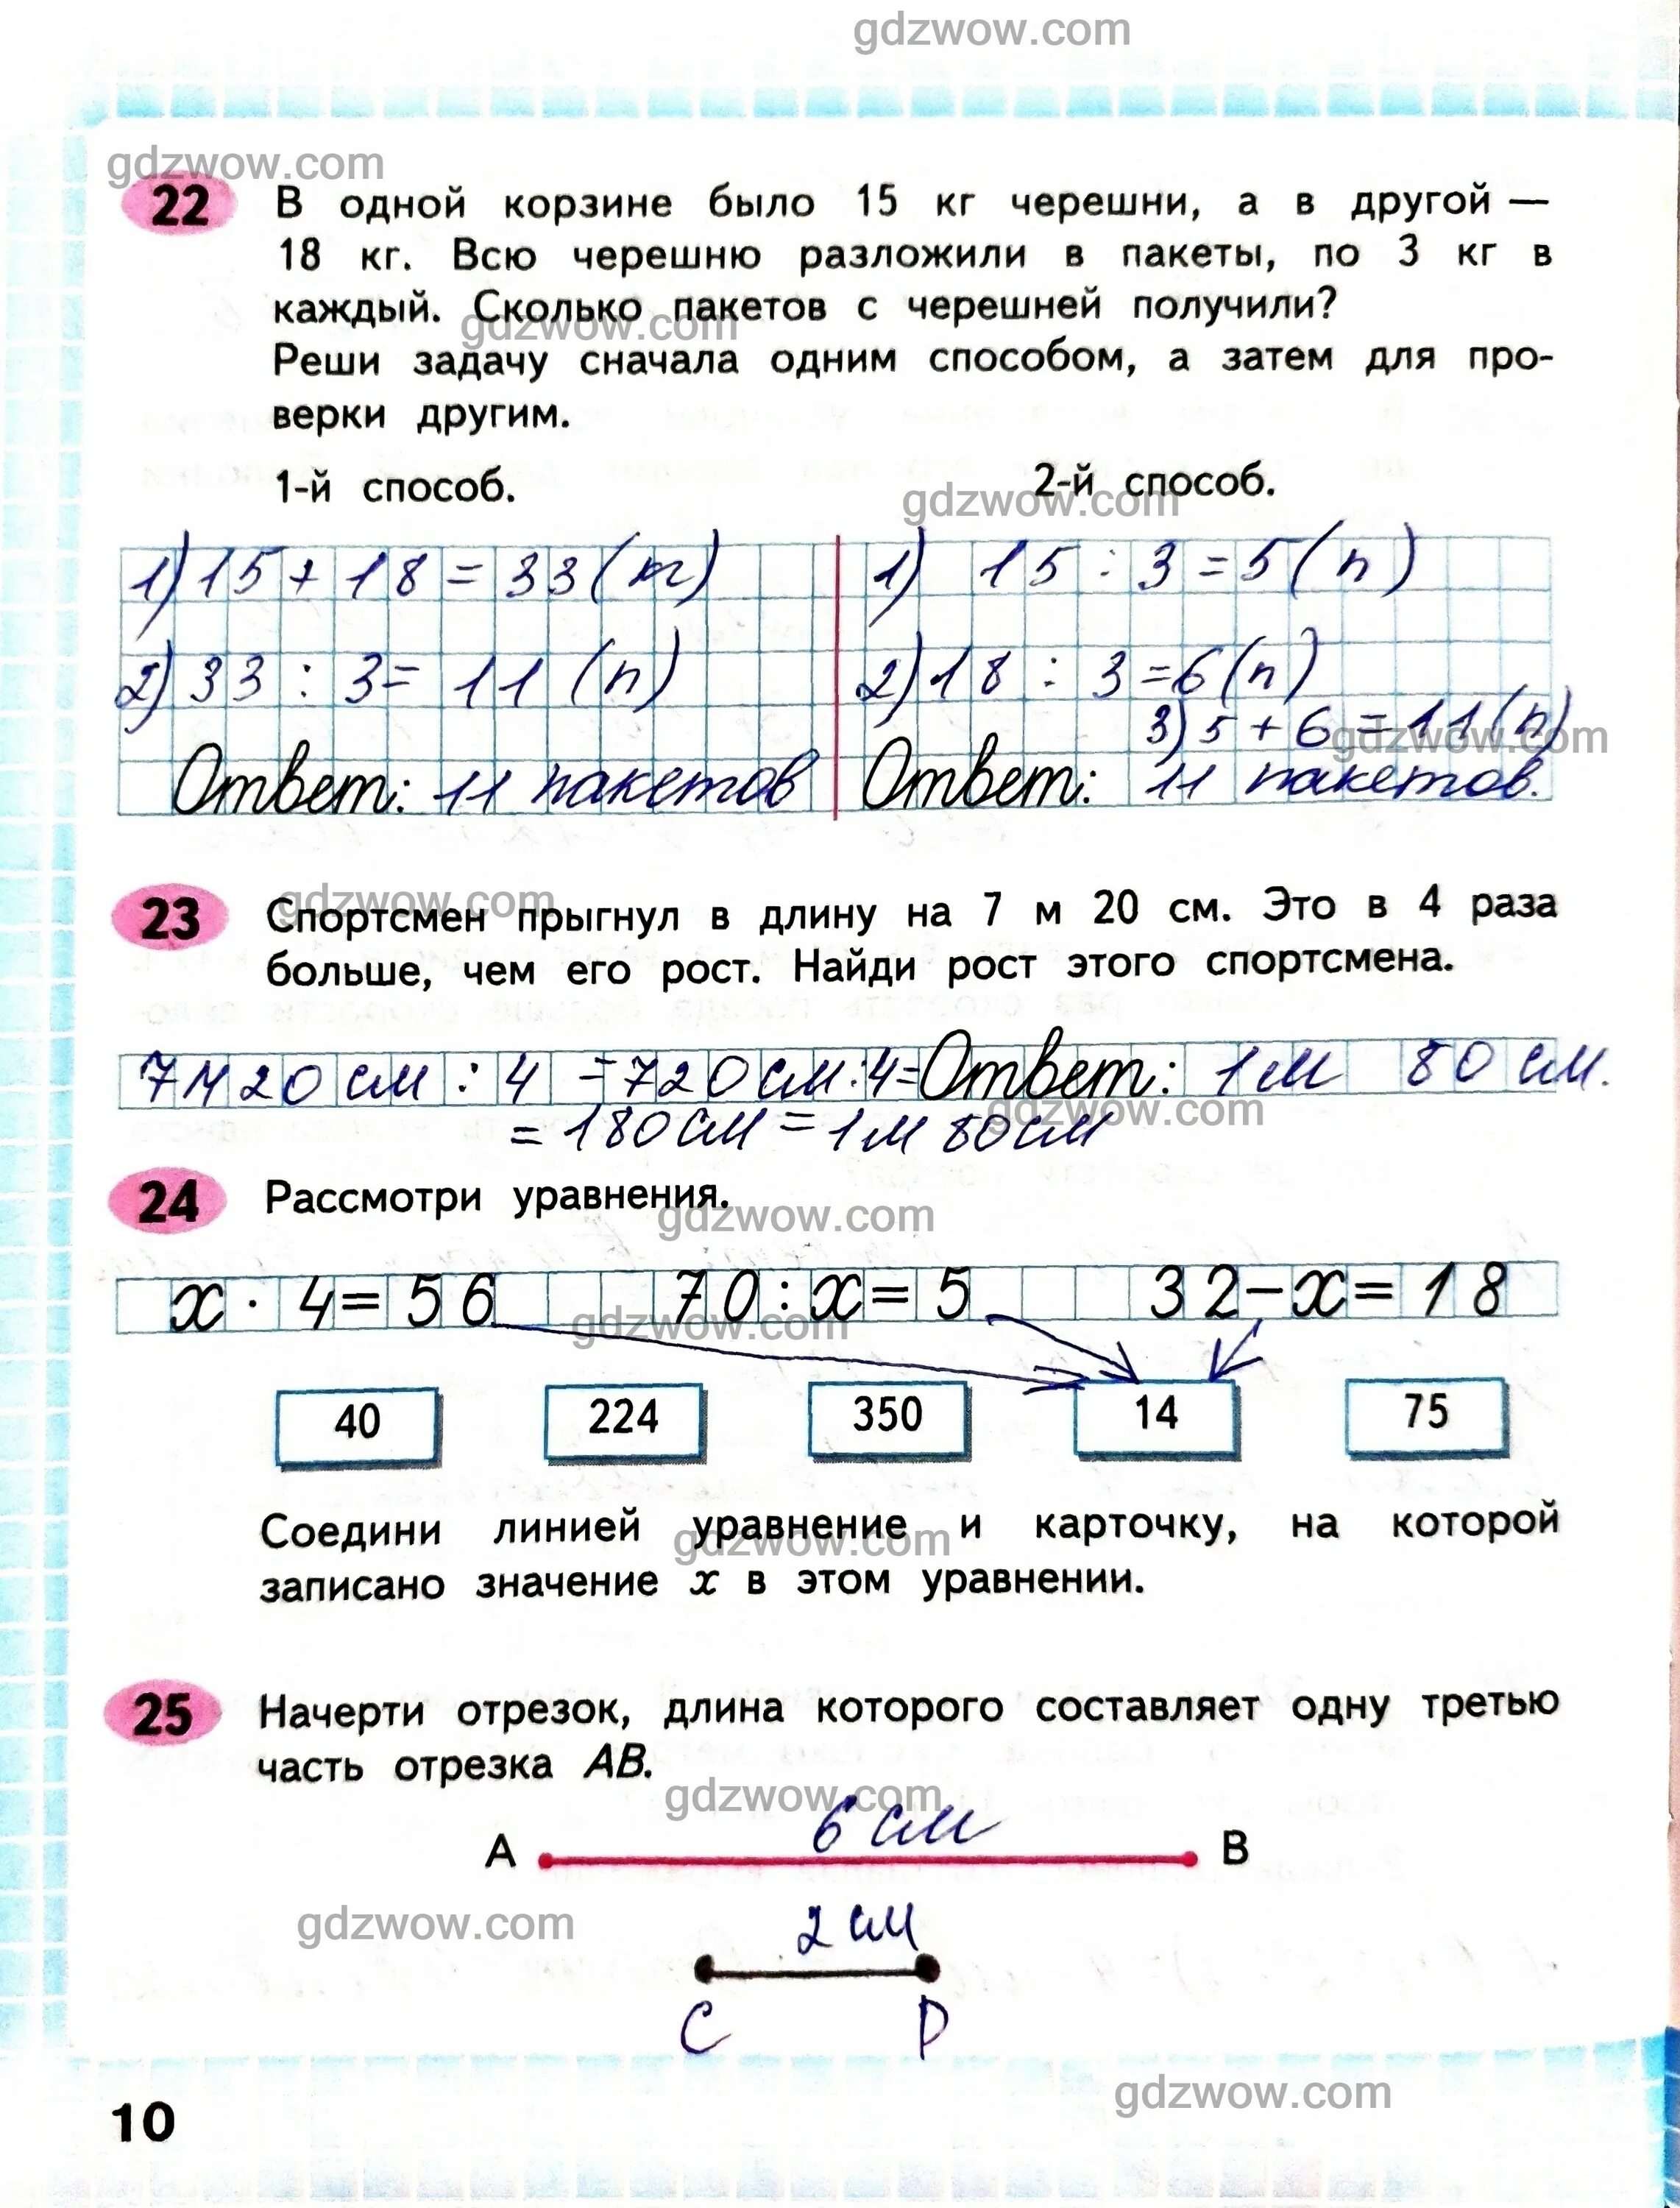 gdzwow.com
gdzwow.com
22 В одной корзине было 15 кг черешни, а в другой —
18 кг. Всю черешню разложили в пакеты, по 3 кг в
каждый. Сколько пакетов с черешней получили?
gdzwow.com
Реши задачу сначала одним способом, а затем для про-
верки другим.
1-й способ. 2-й способ.
gdzwow.com
1) 15 + 18 = 33 (кг) 1) 15 : 3 = 5 (п)
2) 33 : 3 = 11 (п) 2) 18 : 3 = 6 (п)
3) 5 + 6 = 11 (п)
gdzwow.com
Ответ: 11 пакетов Ответ: 11 пакетов.
gdzwow.com
23 Спортсмен прыгнул в длину на 7 м 20 см. Это в 4 раза
больше, чем его рост. Найди рост этого спортсмена.
7м 20 см : 4 = 720 см : 4 = Ответ: 1 м 80 см.
gdzwow.com
= 180 см = 1 м 80 см
24 Рассмотри уравнения.
gdzwow.com
x · 4 = 56 70 : x = 5 32 − x = 18
gdzwow.com
40 224 350 14 75
Соедини линией уравнение и карточку, на которой
gdzwow.com
записано значение x в этом уравнении.
25 Начерти отрезок, длина которого составляет одну третью
часть отрезка AB.
gdzwow.com
6 см
A B
gdzwow.com
2 см
C D
gdzwow.com
10